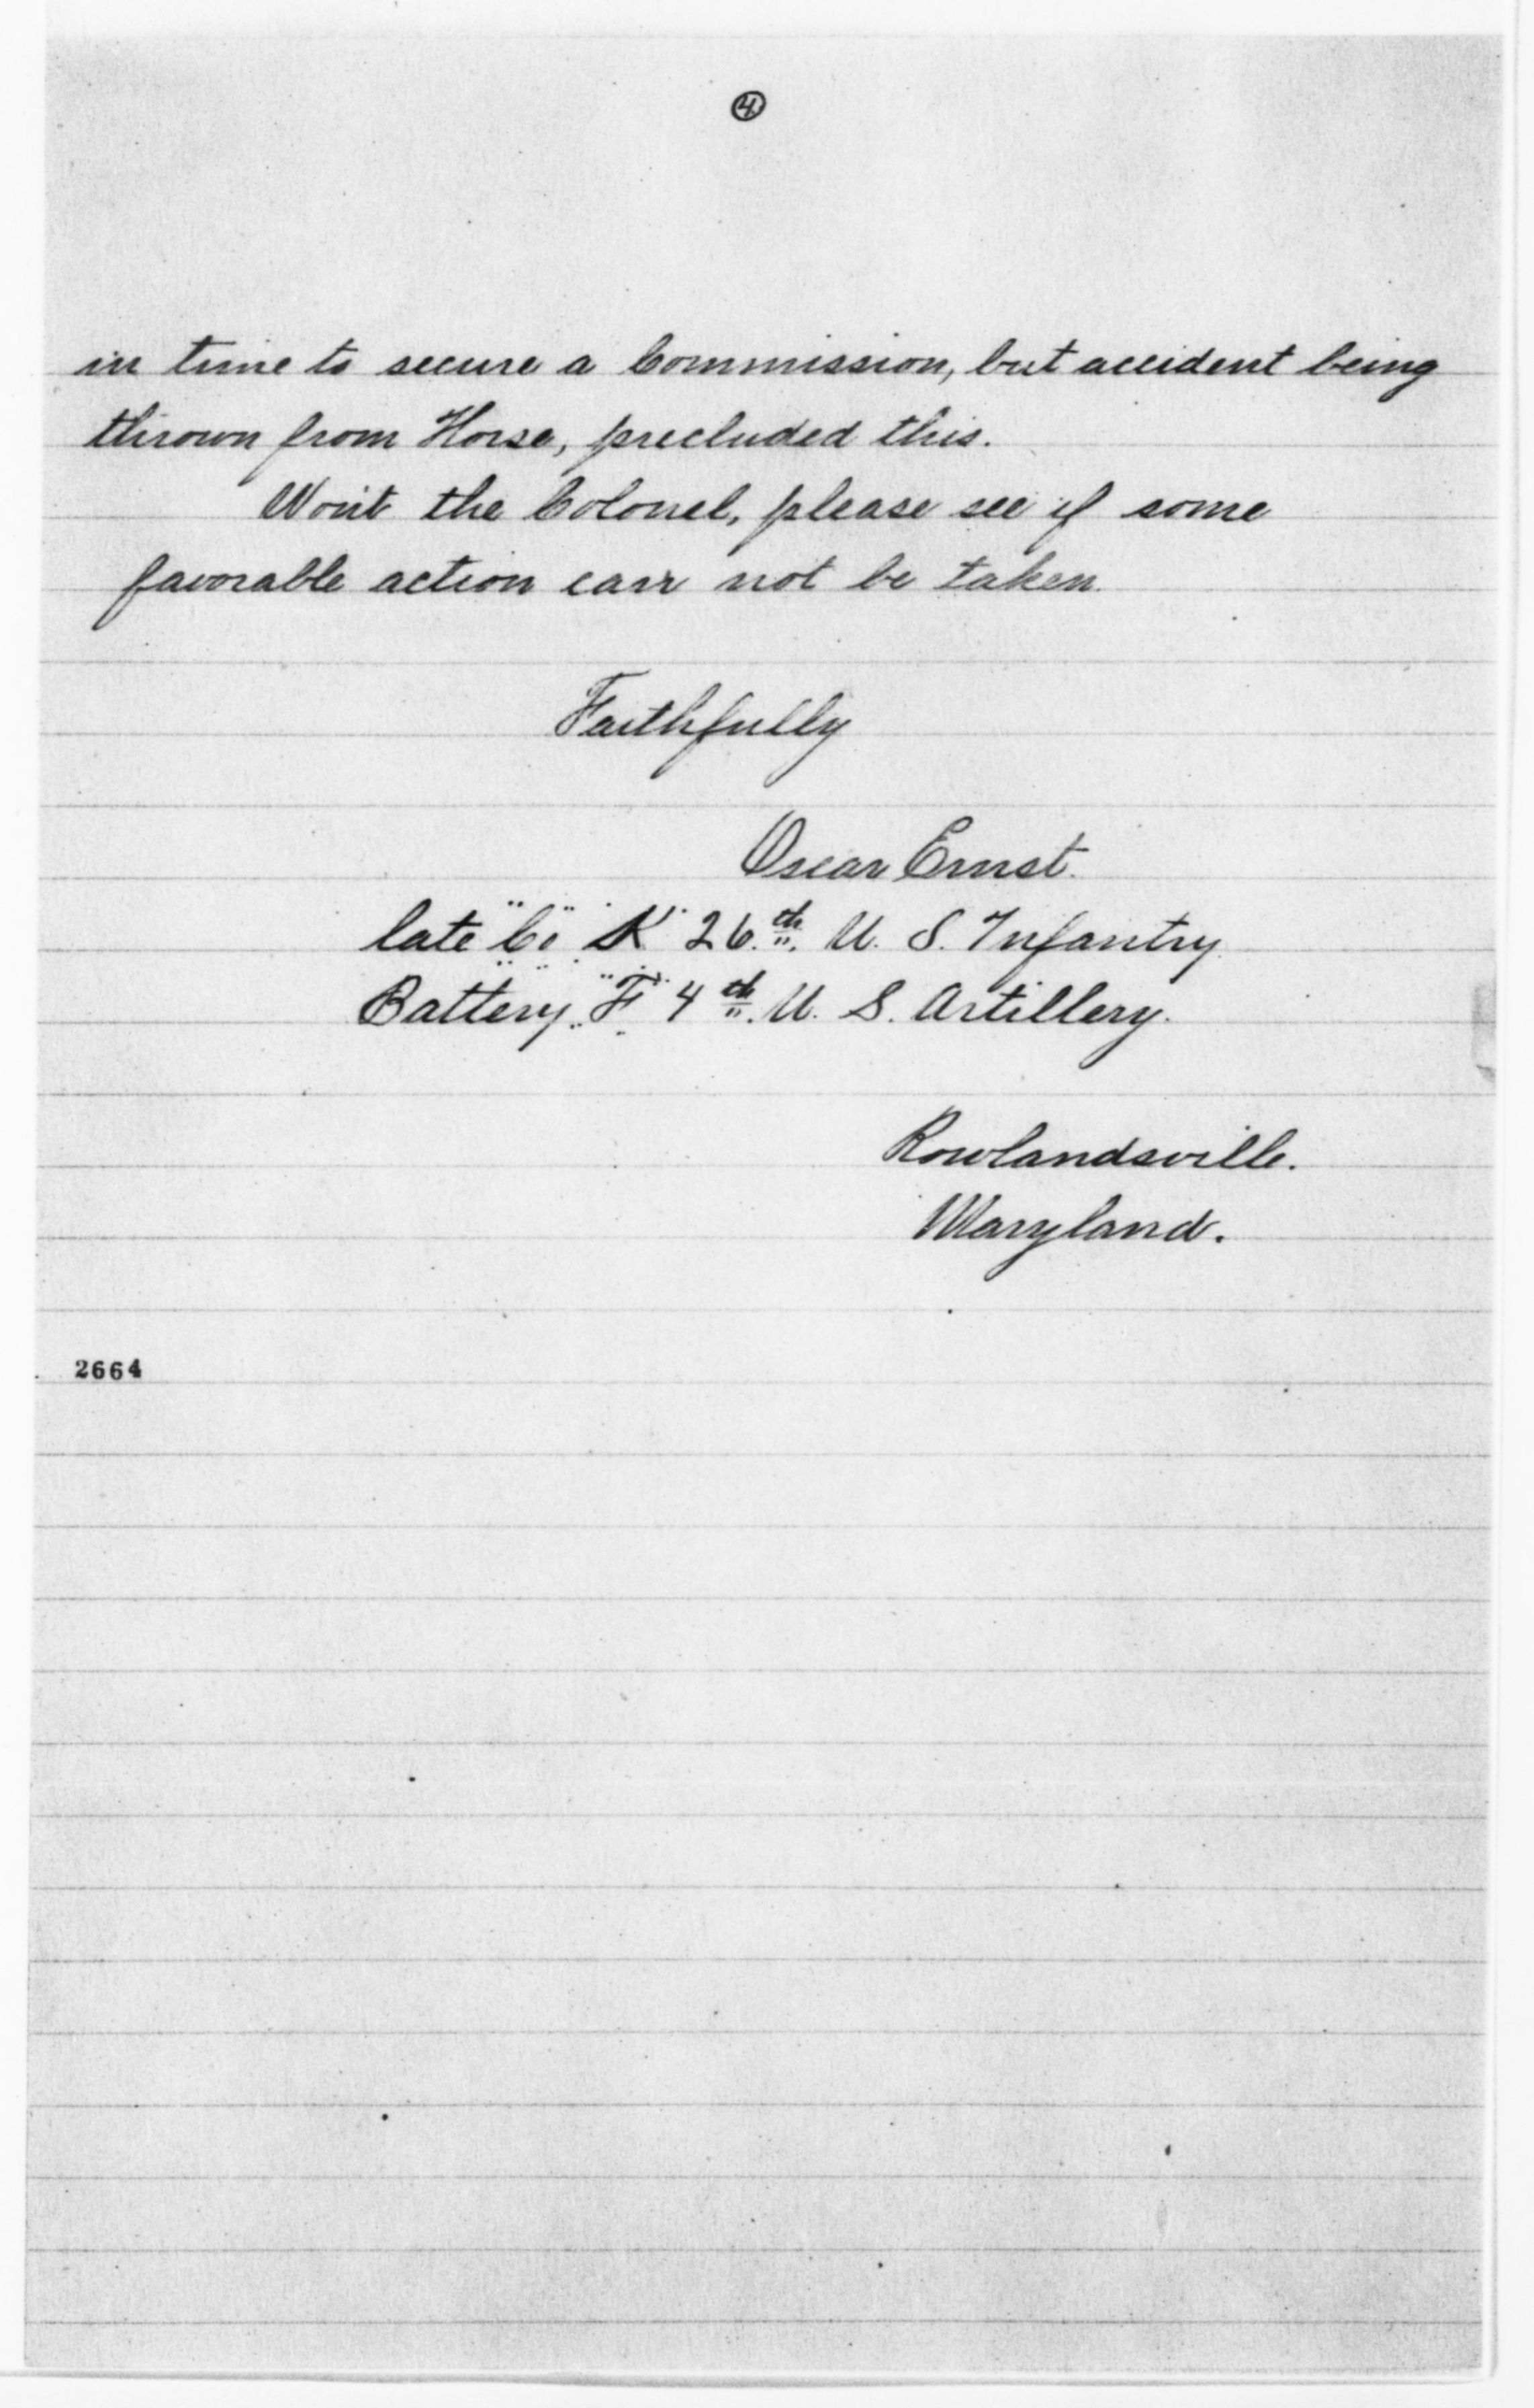 4
in time to secure a Commission, but accident being
thrown from Horse, precluded this.
Won't the Colonel, please see if some
favorable action can not be taken.
Faithfully
Oscar Ernst.
late "Co" "K" 26.th U. S. Infantry.
Battery "F" 4th. U. S. Artillery.
Rowlandsville.
Maryland.
2664